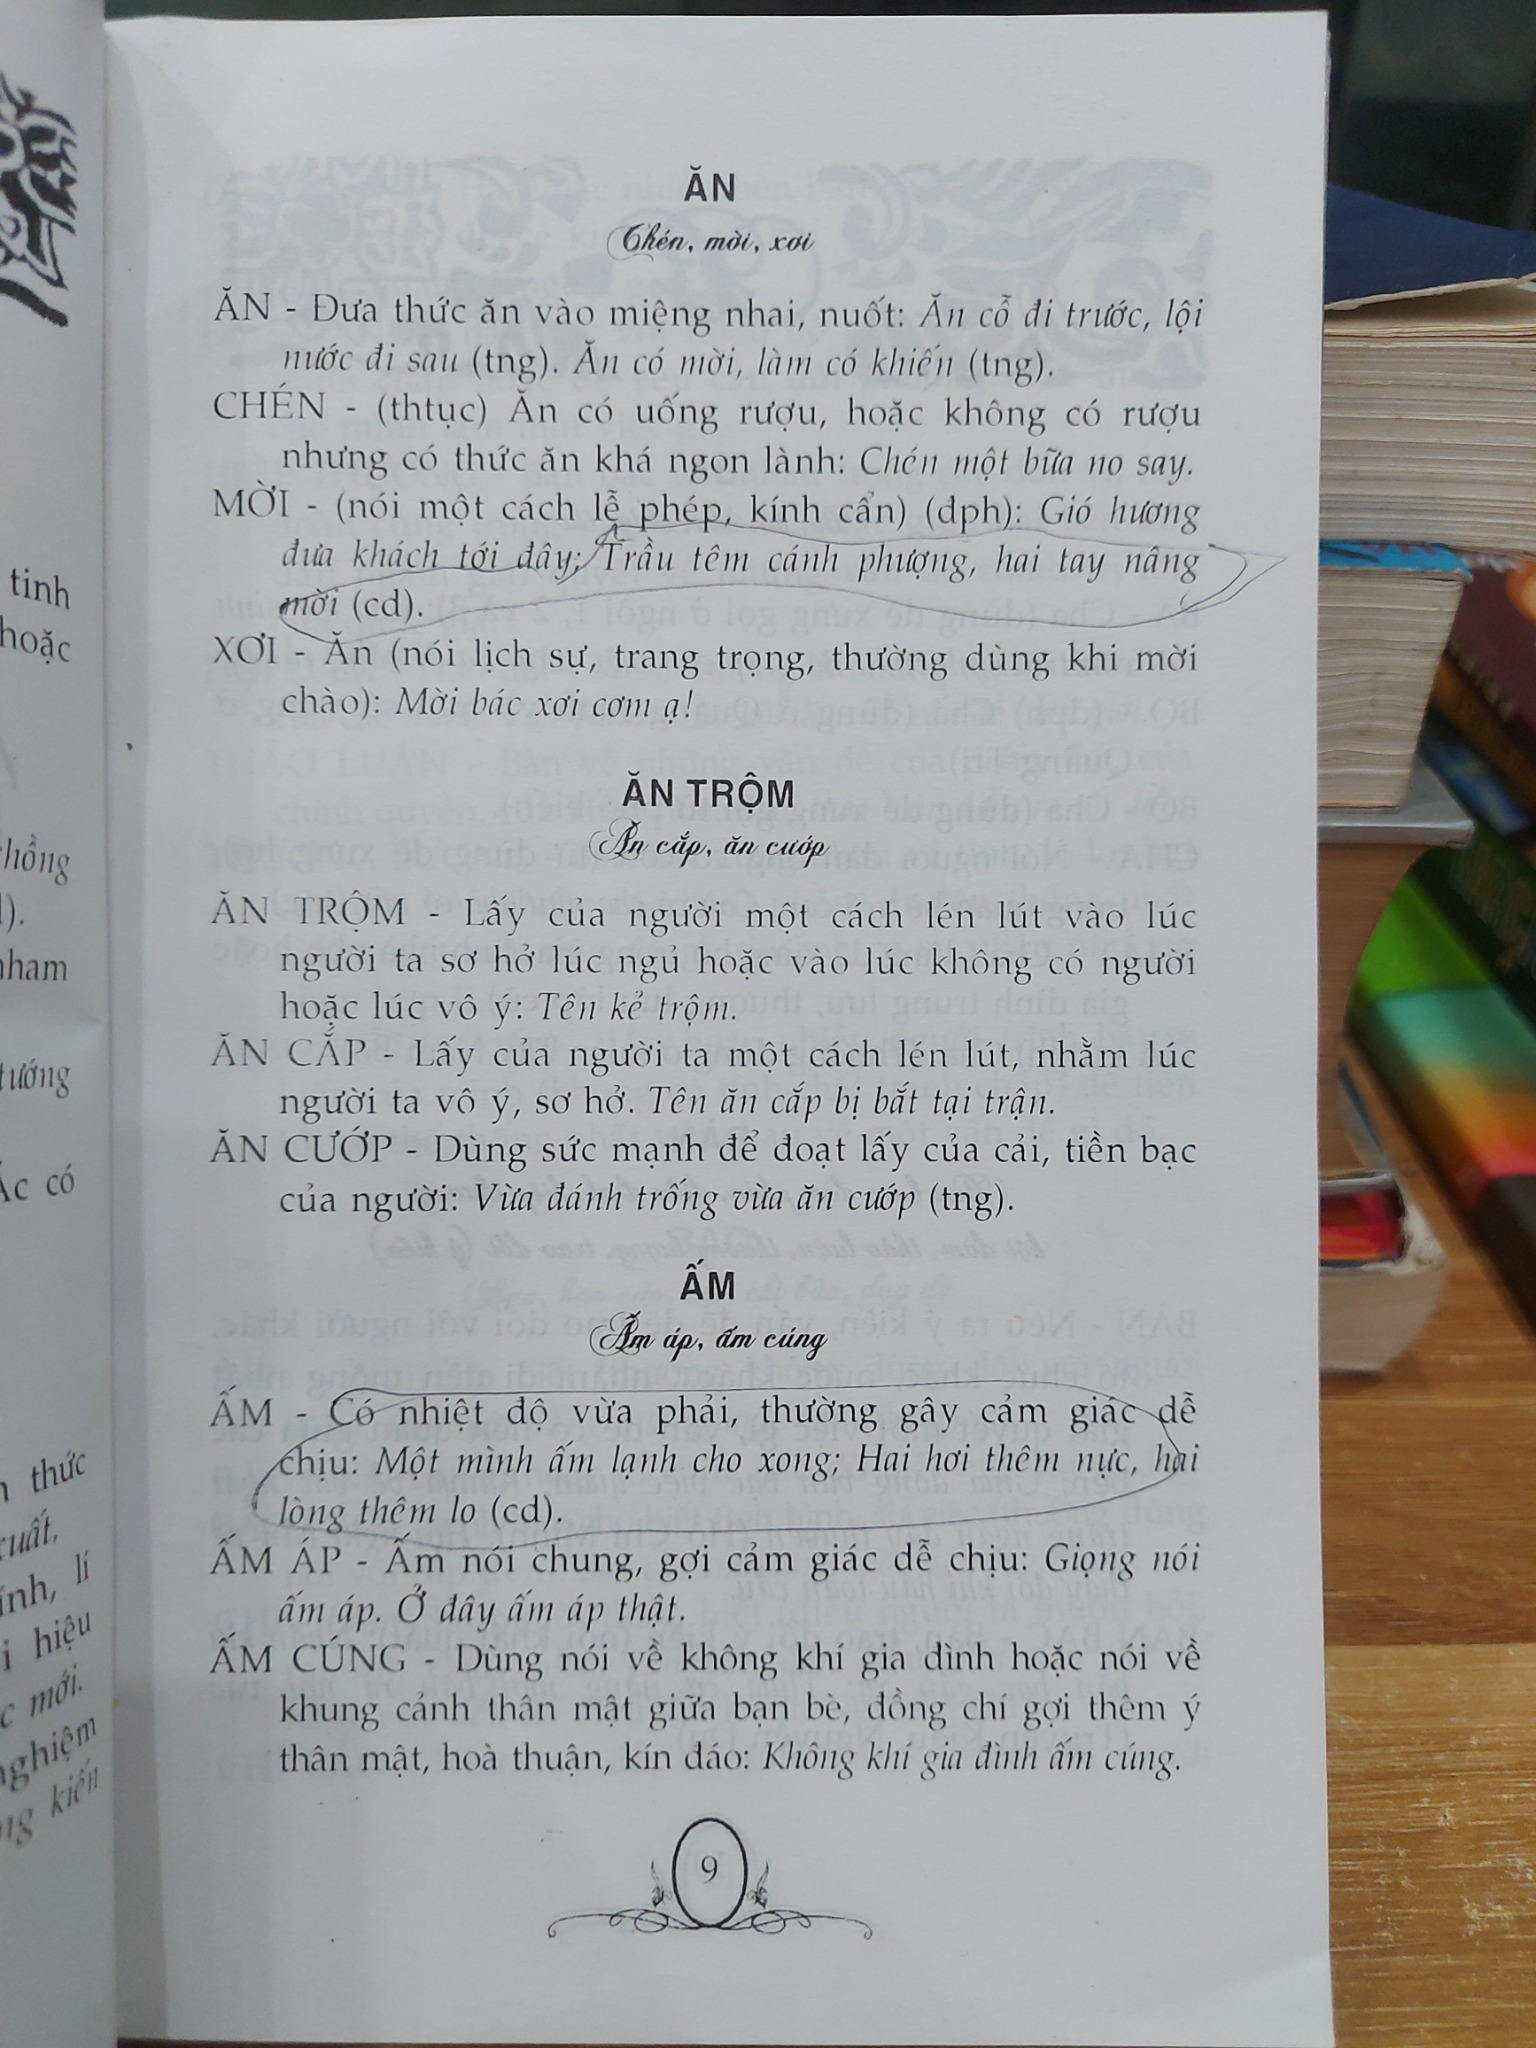 ĂN
Chén, mời, xơi
ĂN - Đưa thức ăn vào miệng nhai, nuốt: Ăn cỗ đi trước, lội
nước đi sau (tng). Ăn có mời, làm có khiến (tng).
CHÉN - (thtục) Ăn có uống rượu, hoặc không có rượu
nhưng có thức ăn khá ngon lành: Chén một bữa no say.
MỜI - (nói một cách lễ phép, kính cẩn) (đph): Gió hương
đưa khách tới đây; Trầu têm cánh phượng, hai tay nâng
mời (cd).
XƠI - Ăn (nói lịch sự, trang trọng, thường dùng khi mời
chào): Mời bác xơi cơm ạ!
ĂN TRỘM
Ăn cắp, ăn cướp
ĂN TRỘM - Lấy của người một cách lén lút vào lúc
người ta sơ hở lúc ngủ hoặc vào lúc không có người
hoặc lúc vô ý: Tên kẻ trộm.
ĂN CẮP - Lấy của người ta một cách lén lút, nhằm lúc
người ta vô ý, sơ hở. Tên ăn cắp bị bắt tại trận.
ĂN CƯỚP - Dùng sức mạnh để đoạt lấy của cải, tiền bạc
của người: Vừa đánh trống vừa ăn cướp (tng).
ẤM
Ấm áp, ấm cúng
ẤM - Có nhiệt độ vừa phải, thường gây cảm giác dễ
chịu: Một mình ấm lạnh cho xong; Hai hơi thêm nực, hai
lòng thêm lo (cd).
ẤM ÁP - Ấm nói chung, gợi cảm giác dễ chịu: Giọng nói
ấm áp. Ở đây ấm áp thật.
ẤM CÚNG - Dùng nói về không khí gia đình hoặc nói về
khung cảnh thân mật giữa bạn bè, đồng chí gợi thêm ý
thân mật, hoà thuận, kín đáo: Không khí gia đình ấm cúng.
9
tinh
hoặc
tướng
có
thức
lí
hiệu
mới.
kiến